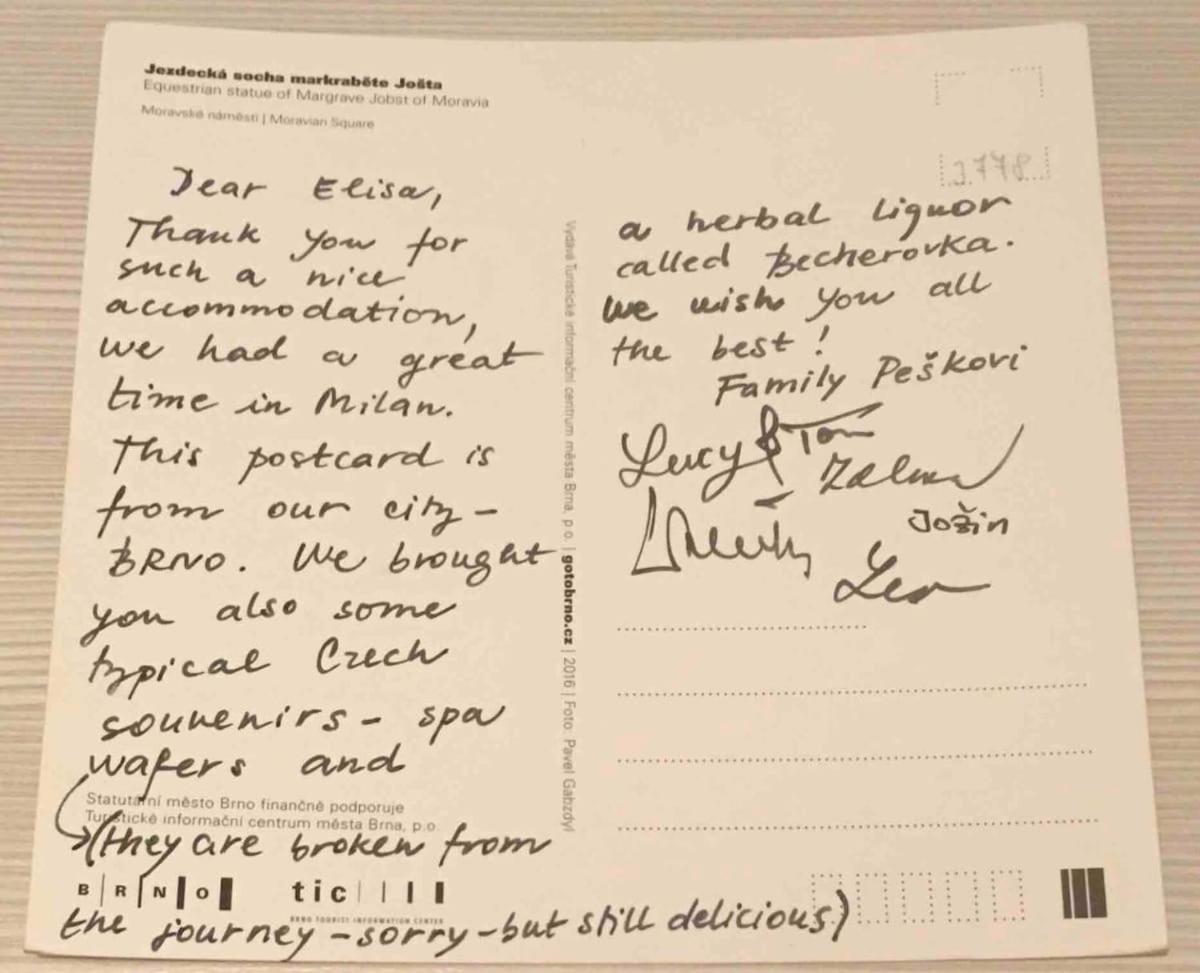 Jezdecká socha markraběte Jošta
Equestrian statue of Margrave Jobst of Moravia
Moravské náměstí | Moravian Square
Dear Elisa,
Thank you for
such a nice
accommodation,
we had a great
time in Milan.
This postcard is
from our city -
BRNO. We brought
you also some
typical Czech
souvenirs - spa
wafers and
(they are broken from
the journey - sorry - but still delicious)
Statutární město Brno finančně podporuje
Turistické informační centrum města Brna, p.o.
BRNO
tic
BRNO TOURIST INFORMATION CENTER
Vydává Turistické informační centrum města Brna, p.o. | gotobrno.cz | 2016 | Foto: Pavel Gabzdyl
J778
a herbal liquor
called Becherovka.
We wish you all
the best!
Family Peškovi
Lucy & Tom
Jožin